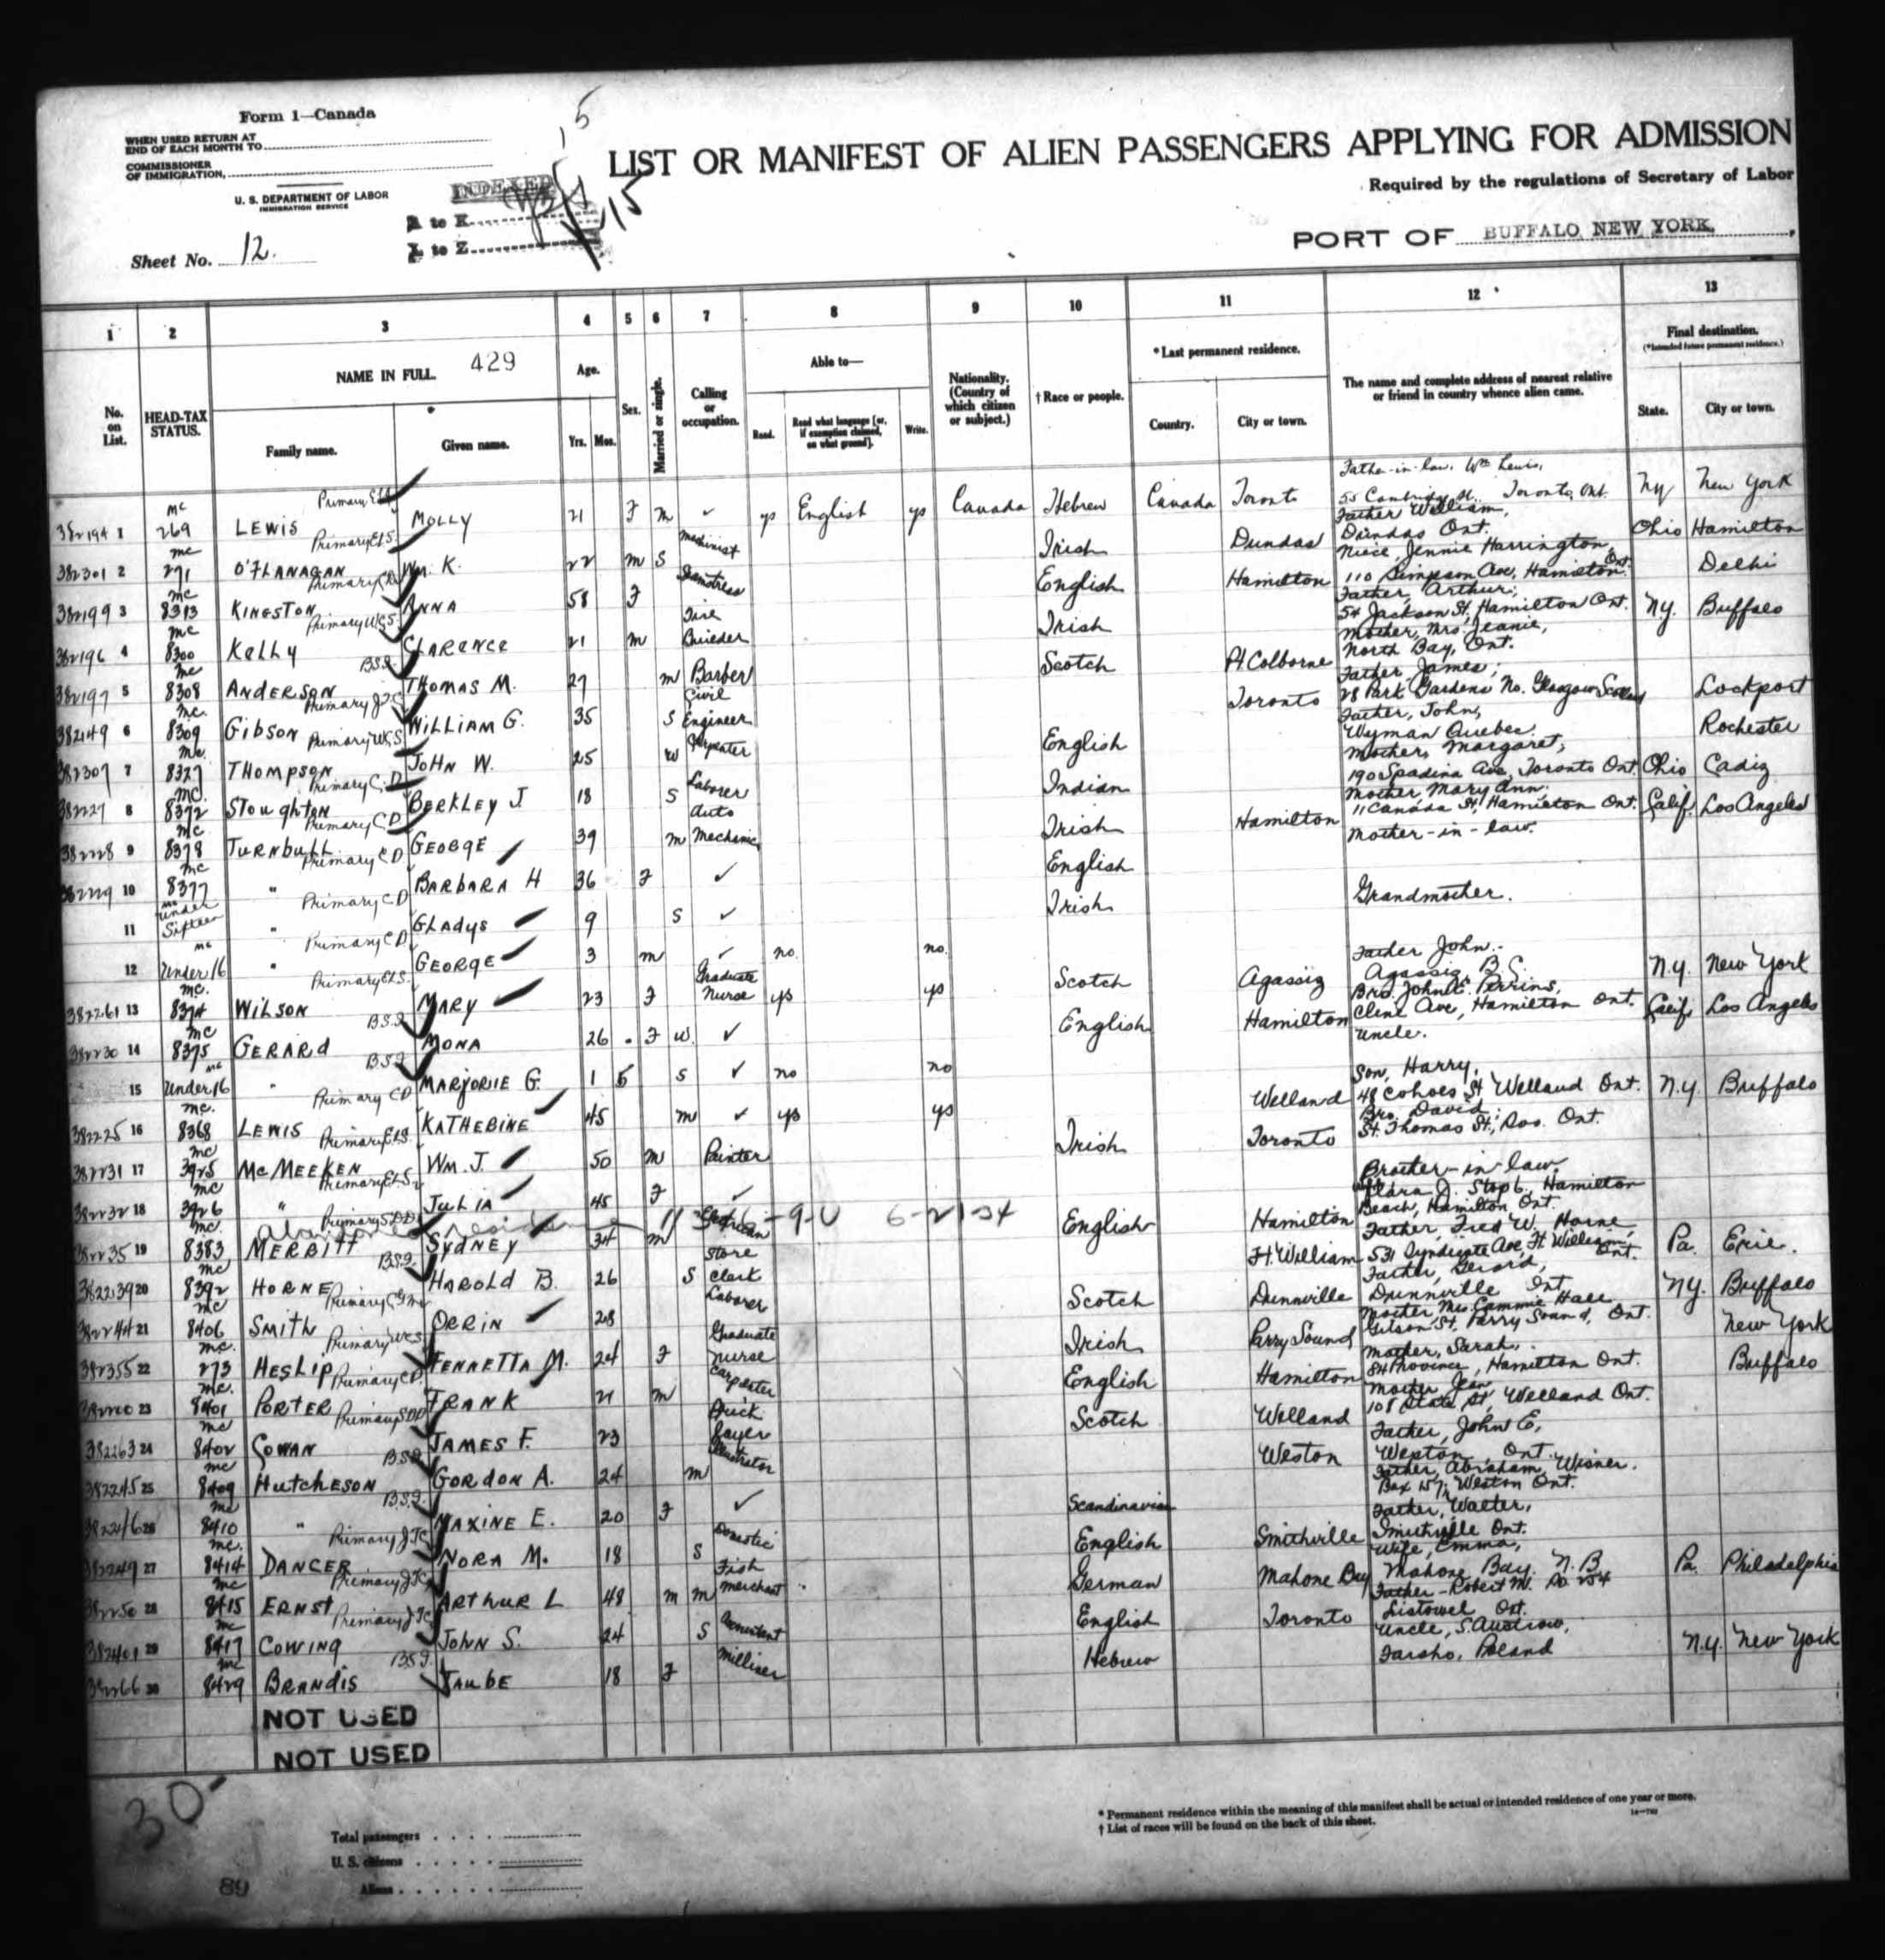 Form 1—Canada
WHEN USED RETURN AT
END OF EACH MONTH TO
COMMISSIONER
OF IMMIGRATION,
U. S. DEPARTMENT OF LABOR
IMMIGRATION SERVICE
INDEXED
A to K
L to Z
Sheet No. 12.
15
LIST OR MANIFEST OF ALIEN PASSENGERS APPLYING FOR ADMISSION
Required by the regulations of Secretary of Labor
PORT OF BUFFALO, NEW YORK,
1 2 3 4 5 6 7 8 9 10 11 12 13
No. on List.
HEAD-TAX STATUS.
NAME IN FULL. 429
Family name. Given name.
Age.
Yrs. Mos.
Sex.
Married or single.
Calling or occupation.
Able to—
Read. Read what language [or, if exemption claimed, on what ground]. Write.
Nationality. (Country of which citizen or subject.)
† Race or people.
* Last permanent residence.
Country. City or town.
The name and complete address of nearest relative or friend in country whence alien came.
Final destination.
(*Intended future permanent residence.)
State. City or town.
382194 1 mc 269 LEWIS MOLLY 21 F m ✓ ys English ys Canada Hebrew Canada Toronto Father-in-law, Wm Lewis, 55 Cambridge St. Toronto, Ont. NY New York
382301 2 mc 271 O'FLANAGAN Primary ELS Wm. K. 22 m S Machinist Irish Dundas Father William, Dundas Ont. Ohio Hamilton
382199 3 mc 8313 KINGSTON Primary CD ANNA 58 F Seamstress English Hamilton Niece, Jennie Harrington, 110 Simpson Ave, Hamilton Ont. Delhi
382196 4 mc 8300 Kelly Primary WCS CLARENCE 21 m Tire Builder Irish Father, Arthur, 54 Jackson St, Hamilton Ont. N.Y. Buffalo
382197 5 mc 8308 ANDERSON BSJ THOMAS M. 27 m Barber Scotch Pt. Colborne Mother, Mrs. Jeanie, North Bay, Ont.
382149 6 mc. 8309 Gibson Primary JTC WILLIAM G. 35 S Civil Engineer Toronto Father, James, 28 Park Gardens No. Glasgow Scotland Lockport
382307 7 mc. 8327 THOMPSON Primary WCS JOHN W. 25 w Carpenter English Father, John, Wyman Quebec. Rochester
382227 8 mc. 8372 Stoughton Primary CD BERKLEY J. 18 S Laborer Indian Mother, Margaret, 190 Spadina Ave, Toronto Ont. Ohio Cadiz
382228 9 mc 8378 TURNBULL Primary CD GEORGE 39 m Auto Mechanic Irish Hamilton Mother, Mary Ann. 11 Canada St, Hamilton Ont. Calif. Los Angeles
382229 10 mc 8377 " Primary CD BARBARA H 36 F ✓ English Mother-in-law.
11 mc under Sixteen " Primary CD GLADYS 9 S ✓ Irish Grandmother.
12 mc Under 16 " Primary CD GEORGE 3 m ✓ no. no.
382261 13 mc. 8374 WILSON Primary ELS. MARY 23 F Graduate Nurse ys ys Scotch Agassiz Father John. Agassiz, B.C. N.Y. New York
382230 14 mc 8375 GERARD BSJ MONA 26 F w. ✓ English Hamilton Bro. John E. Perrins, Cline Ave, Hamilton Ont. Calif. Los Angeles
15 mc Under 16 " BSJ MARJORIE G. 1 5 S ✓ no no Uncle.
382225 16 mc. 8368 LEWIS Primary CD KATHERINE 45 m ✓ ys ys Welland Son, Harry, 48 Cohoes St Welland Ont. N.Y. Buffalo
382231 17 mc 3925 McMEEKEN Primary ELS WM. J. 50 m Painter Irish Toronto Bro. David, St. Thomas St., Ont.
382232 18 mc 3926 " Primary ELS JULIA 45 F ✓ Brother-in-law.
382235 19 mc. 8383 MERRITT Primary SDD SYDNEY 34 m English Hamilton Wife Clara J. Stop 6, Hamilton Beach, Hamilton Ont.
6-21-34
382239 20 mc 8392 HORNE BSJ. HAROLD B. 26 S Store Clerk Ft. William Father, Fred W. Horne, 531 Syndicate Ave, Ft William, Ont. Pa. Erie.
382244 21 mc 8406 SMITH ORRIN 28 Laborer Scotch Dunnville Father, Gerard, Dunnville Ont NY. Buffalo
382355 22 mc. 273 HESLIP Primary WCS HENRETTA M. 24 F Graduate nurse Irish Parry Sound Mother Mrs. Cammie Hall Gibson St, Parry Sound, Ont. New York
23 mc. 8401 PORTER Primary CD FRANK 21 m Carpenter English Hamilton Mother, Sarah. 84 Province, Hamilton Ont. Buffalo
382263 24 mc 8402 COWAN Primary SDD JAMES F. 23 Brick Layer Scotch Welland Mother Jean 108 State St, Welland Ont.
382245 25 mc 8409 HUTCHESON BSJ GORDON A. 24 m Illustrator Weston Father, John E, Weston, Ont.
382246 26 mc 8410 " BSJ. MAXINE E. 20 F ✓ Scandinavian Father, Abraham Wisner. Box 157, Weston Ont.
382249 27 mc. 8414 DANCER Primary JTC NORA M. 18 S Domestic English Smithville Father, Walter, Smithville Ont.
382250 28 mc 8415 ERNST Primary JTC ARTHUR L 48 m m Fish merchant German Mahone Bay Wife, Emma, Mahone Bay. N.B Pa. Philadelphia
382401 29 mc 8417 COWING Primary JTC JOHN S. 24 S Accountant English Toronto Father-Robert W. Bo 254 Listowel Ont.
382266 30 mc 8429 BRANDIS BSJ. TAUBE 18 F Milliner Hebrew Uncle, S. Austrow, Poland N.Y. New York
NOT USED
NOT USED
30-
Total passengers
U. S. citizens
Aliens
89
* Permanent residence within the meaning of this manifest shall be actual or intended residence of one year or more.
† List of races will be found on the back of this sheet.